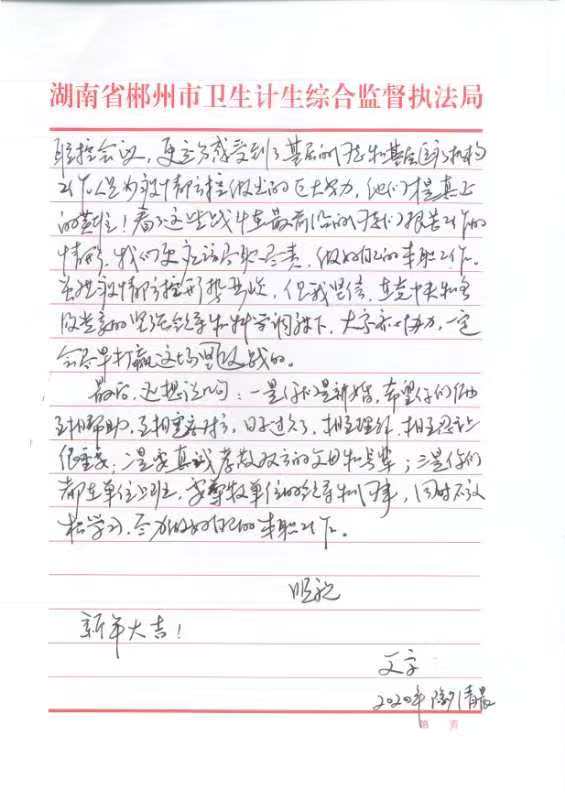 湖南省郴州市卫生计生综合监督执法局
联控会议，更充分感受到了基层的同志和基层医疗机构
工作人员为疫情防控做出的巨大努力，他们才是真正
的英雄！看了这些战斗在最前沿的同志们报告工作的
情形，我们更应该尽职尽责，做好自己的本职工作。
虽然疫情防控形势严峻，但我坚信，在党中央和各
级党委的坚强领导和科学调控下，大家齐心协力，一定
会尽早打赢这场阻击战的。
最后，还想说几句：一是你们是新婚，希望你们俩
互相帮助，互相尊重，日子过久了，相互理解，相互忍让
很重要；二是要真诚孝敬双方的父母和长辈；三是你们
都在单位上班，要尊敬单位的领导和同事，同时不放
松学习，尽力做好自己的本职工作。
顺祝
新年大吉！
父字
2020年 清晨
第 页